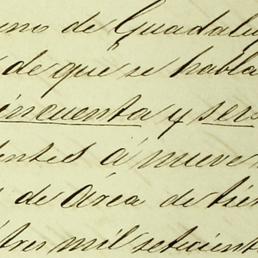 uno de Guadalu
de que se habla
cincuenta y seis
entes á nueve
de área de tier
tres mil setecient